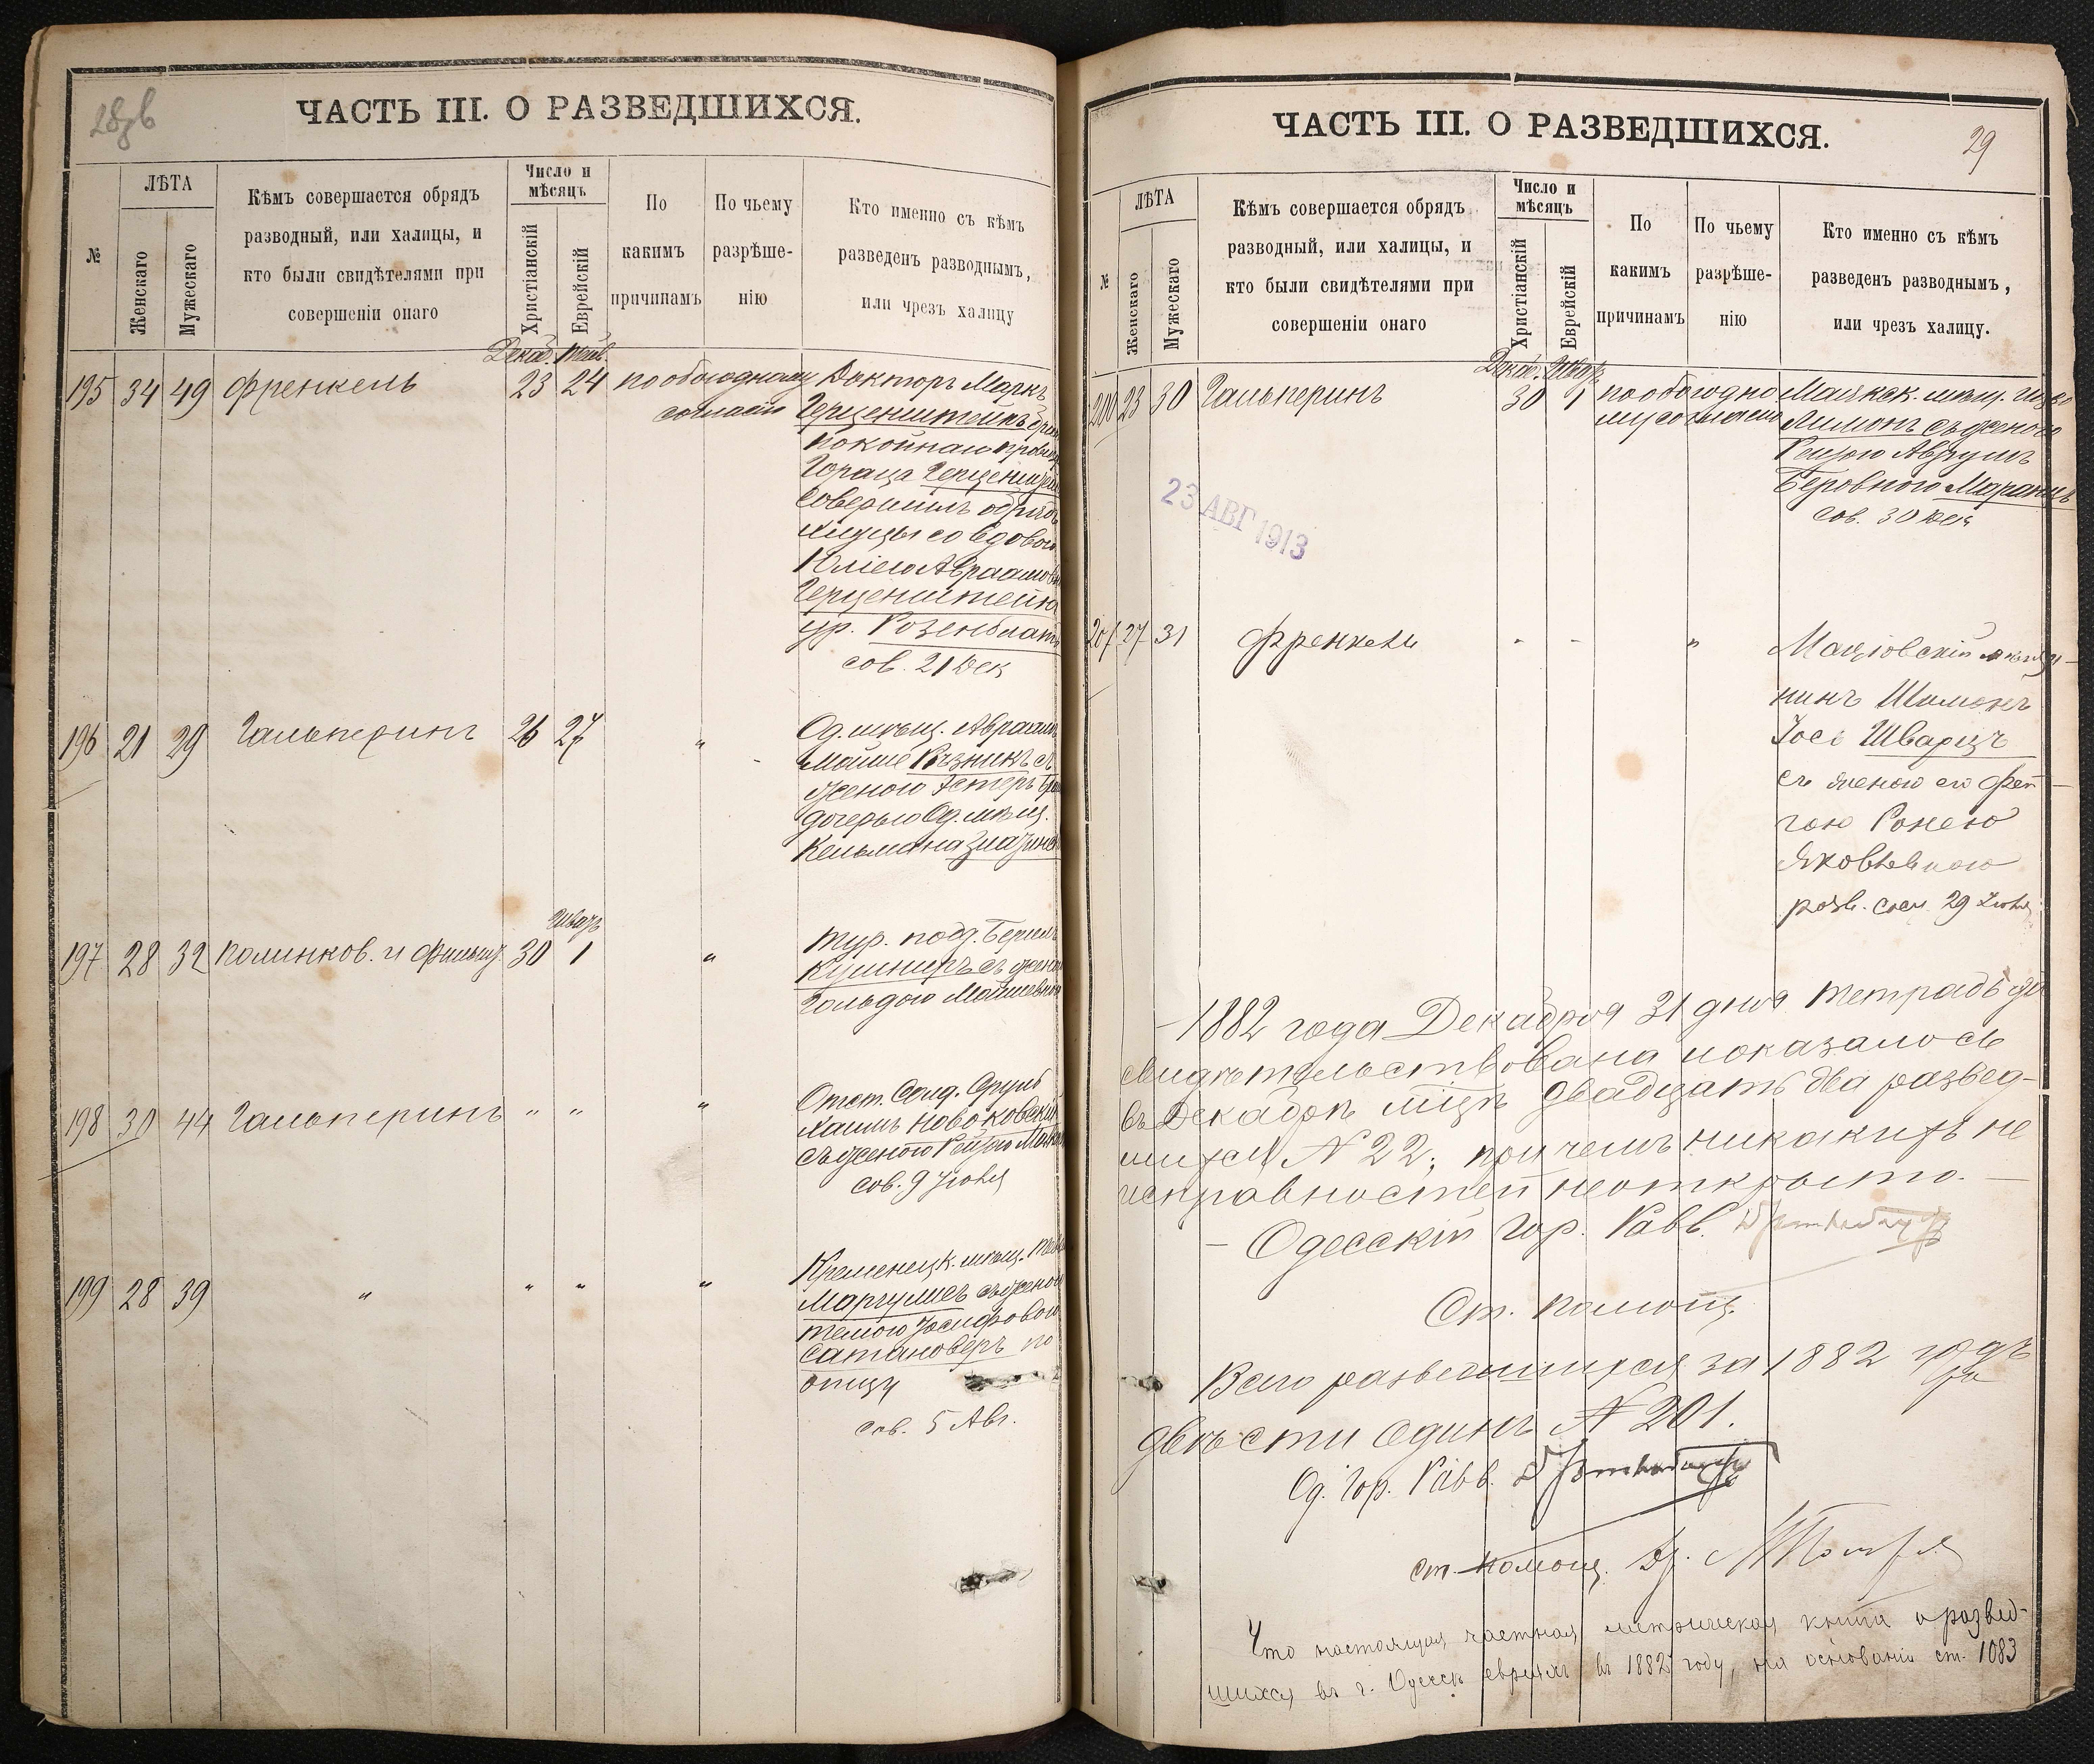 28 об
ЧАСТЬ III. О РАЗВЕДШИХСЯ.
№
ЛѢТА
Женскаго
Мужескаго
Кѣмъ совершается обрядъ
разводный, или халицы, и
кто были свидѣтелями при
совершеніи онаго
Число и
мѣсяцъ
Христіанскій
Еврейскій
По
какимъ
причинамъ
По чьему
разрѣше-
нію
Кто именно съ кѣмъ
разведенъ разводнымъ,
или чрезъ халицу
Декаб.
195 34 49 Френкель 23 24 по обоюдному Докторъ Маркъ
согласію Герценштейнъ
покойнаго
Гораца
совершилъ обрядъ
халицы со вдовою
Юліею Авраамов
Герценштейнъ
ур. Розенблатъ
сов. 21 Дек
196 21 29 Гальперинъ 26 27 " Од. мѣщ. Авраамъ
Мойше Рѣзникъ съ
женою Эстеръ
дочерью Од. мѣщ.
Кельмана
Шватъ
197 28 32 Полинков. и 30 1 " Тур. подд. Берилъ
Кушниръ съ жено
Гольдою
198 30 44 Гальперинъ " " " Отст. Солд. Сруль
Хаимъ Новоковскій
съ женою
сов. 9 Іюня
199 28 39 " " " " Кременецк. мѣщ.
Маргулисъ съ женою
Темою Іосифовою
Сатановеръ по
отцу
сов. 5 Авг.
ЧАСТЬ III. О РАЗВЕДШИХСЯ.
29
№
ЛѢТА
Женскаго
Мужескаго
Кѣмъ совершается обрядъ
разводный, или халицы, и
кто были свидѣтелями при
совершеніи онаго
Число и
мѣсяцъ
Христіанскій
Еврейскій
По
какимъ
причинамъ
По чьему
разрѣше-
нію
Кто именно съ кѣмъ
разведенъ разводнымъ,
или чрезъ халицу.
Декаб. Шватъ
200 23 30 Гальперинъ 30 1 по обоюдно Маякск. мѣщ.
му согласію Лимонъ съ женою
Рейзею
Беровною
сов. 30 Дек
23 АВГ 1913
201 27 31 Френкель " " "
нинъ Шимонъ
Іось Шварцъ
съ женою его Фей
гою Ронею
Яковлевною
разв. 29 Іюня
1882 года Декабря 31 дня тетрадь
свидѣтельствована и оказалось
въ Декабрѣ мцѣ двадцать два развед-
шихся N 22, при чемъ никакихъ не
исправностей не открыто.
Одесскій Гор. Равв.
Ст. помощ.
Всего разведшихся за 1882 годъ
двѣсти одинъ N 201.
Од. Гор. Равв.
ст. помощ. Др.
Что настоящая частная метрическая книга о развед-
шихся въ г. Одессѣ евреяхъ въ 1882 году, на основаніи ст. 1083